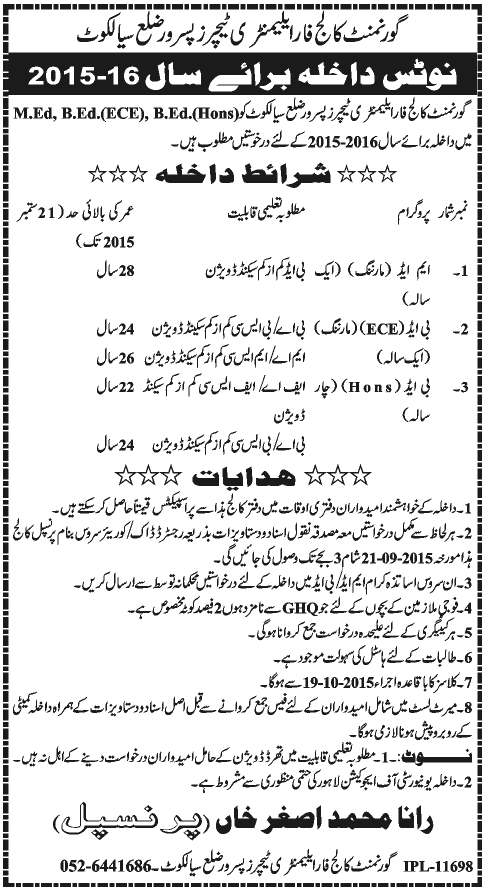 گورنمنٹ کالج فار ایلیمنٹری ٹیچرز پسرور ضلع سیالکوٹ
نوٹس داخلہ برائے سال 16-2015
گورنمنٹ کالج فار ایلیمنٹری ٹیچرز پسرور ضلع سیالکوٹ کو M.Ed, B.Ed.(ECE), B.Ed.(Hons)
میں داخلہ برائے سال 2016-2015 کے لئے درخواستیں مطلوب ہیں۔
☆☆☆ شرائط داخلہ ☆☆☆
نمبر شمار پروگرام مطلوبہ تعلیمی قابلیت عمر کی بالائی حد (21 ستمبر
2015 تک)
1۔ ایم ایڈ (مارننگ) (ایک بی ایڈ کم از کم سیکنڈ ڈویژن 28 سال
سالہ)
2۔ بی ایڈ (ECE) (مارننگ) بی اے/ بی ایس سی کم از کم سیکنڈ ڈویژن 24 سال
(ایک سالہ) ایم اے/ ایم ایس سی کم از کم سیکنڈ ڈویژن 26 سال
3۔ بی ایڈ (Hons) (چار ایف اے/ ایف ایس سی کم از کم سیکنڈ 22 سال
سالہ) ڈویژن
بی اے/ بی ایس سی کم از کم سیکنڈ ڈویژن 24 سال
☆☆☆ ھدایات ☆☆☆
1۔ داخلہ کے خواہشمند امیدواران دفتری اوقات میں دفتر کالج ہذا سے پراسپیکٹس قیمتاً حاصل کر سکتے ہیں۔
2۔ ہر لحاظ سے مکمل درخواستیں معہ مصدقہ نقول اسناد و دستاویزات بذریعہ رجسٹرڈ ڈاک/ کوریئر سروس بنام پرنسپل کالج
ہذا مورخہ 2015-09-21 شام 3 بجے تک وصول کی جائیں گی۔
3۔ ان سروس اساتذہ کرام ایم ایڈ/ بی ایڈ میں داخلہ کے لئے درخواستیں محکمانہ توسط سے ارسال کریں۔
4۔ فوجی ملازمین کے بچوں کے لئے جو GHQ سے نامزد ہوں 2 فیصد کوٹہ مخصوص ہے۔
5۔ ہر کیٹیگری کے لئے علیحدہ درخواست جمع کروانا ہوگی۔
6۔ طالبات کے لئے ہاسٹل کی سہولت موجود ہے۔
7۔ کلاسز کا باقاعدہ اجراء 2015-10-19 سے ہوگا۔
8۔ میرٹ لسٹ میں شامل امیدواران کے لئے فیس جمع کروانے سے قبل اصل اسناد و دستاویزات کے ہمراہ داخلہ کمیٹی
کے روبرو پیش ہونا لازمی ہوگا۔
نوٹ:۔ 1۔ مطلوبہ تعلیمی قابلیت میں تھرڈ ڈویژن کے حامل امیدواران درخواست دینے کے اہل نہ ہیں۔
2۔ داخلہ یونیورسٹی آف ایجوکیشن لاہور کی حتمی منظوری سے مشروط ہے۔
رانا محمد اصغر خاں (پرنسپل)
گورنمنٹ کالج فار ایلیمنٹری ٹیچرز پسرور ضلع سیالکوٹ۔ 052-6441686 IPL-11698